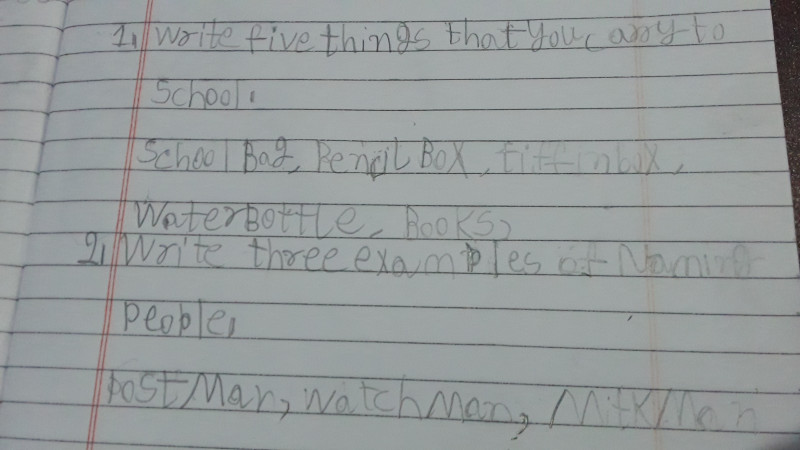 1, Write five things that you carry to
School.
School Bag, Pencil Box, tiffinbox,
WaterBottle, Books,
2, Write three examples of Naming
people,
postMan, watchMan, MilkMan